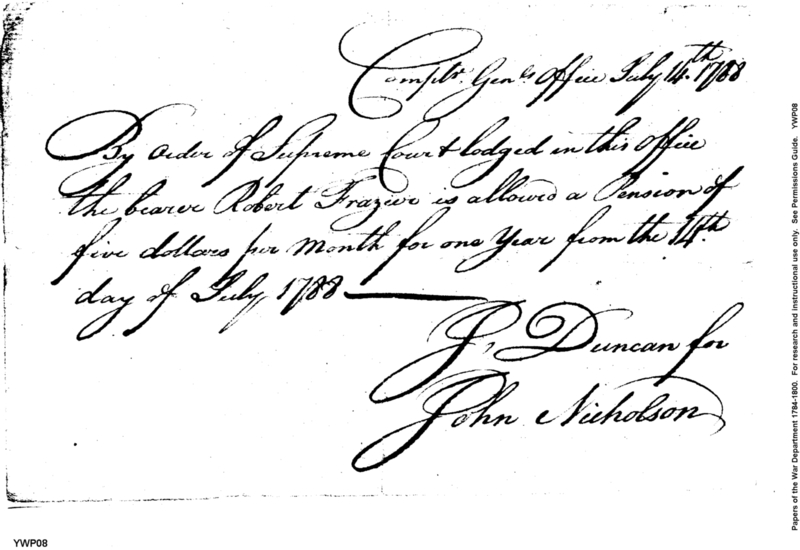 Complr. Genls Office July 14th. 1788
By order of Supreme Court lodged in this office
the bearer Robert Frazier is allowed a Pension of
five dollars per Month for one Year from the 14th.
day of July 1788
J, Duncan for
John Nicholson
Papers of the War Department 1784-1800. For research and instructional use only. See Permissions Guide. YWP08
YWP08